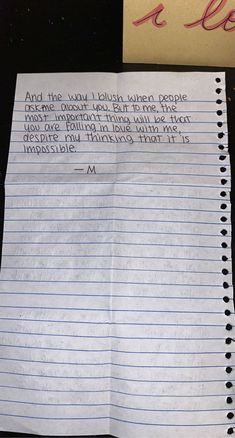 i lo
And the way I blush when people
ask me about you. But to me, the
most important thing will be that
you are falling in love with me,
despite my thinking that it is
impossible.
— M